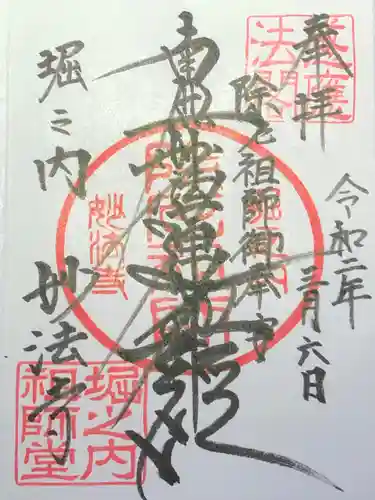 奉拝
令和二年
三月六日
除厄祖師御奉守
南無妙法蓮華経
堀之内 妙法寺
堀之内
祖師堂
妙法寺